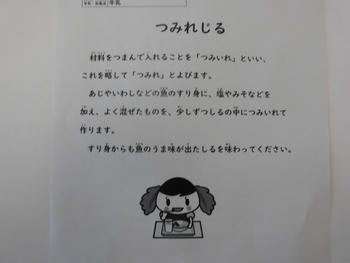 牛乳
つみれじる
材料をつまんで入れることを「つみいれ」といい、
これを略して「つみれ」とよびます。
あじやいわしなどの魚のすり身に、塩やみそなどを
加え、よく混ぜたものを、少しずつしるの中につみいれて
作ります。
すり身からも魚のうま味が出たしるを味わってください。